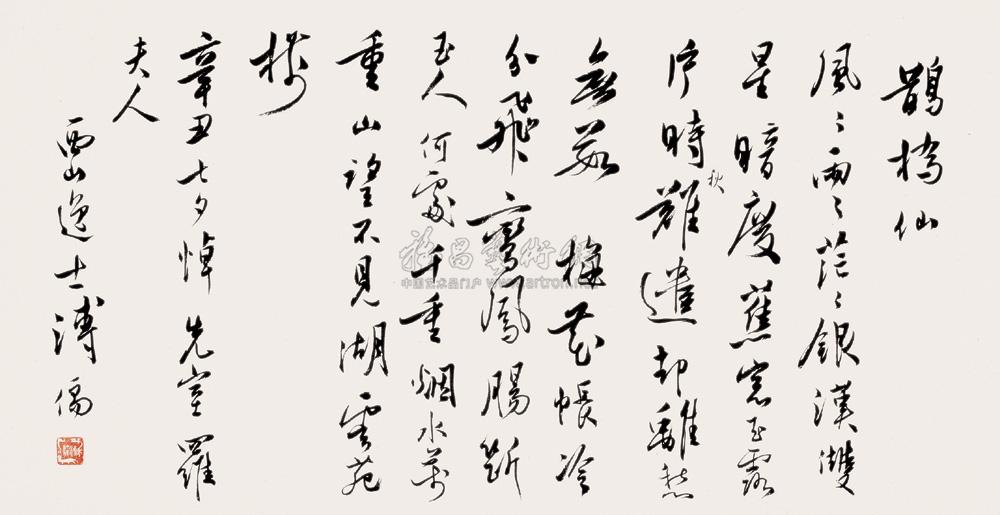 鵲橋仙
風〻雨〻茫〻銀漢雙
星暗度蕉窓玉露
片時秋難遣却離愁
無數 梅花帳冷
分飛鸞鳳腸斷
玉人何處千重烟水萬
重山望不見湖雲苑
樹
辛丑七夕悼先室羅
夫人
西山逸士溥儒
中国艺术品门户 www.artron.net